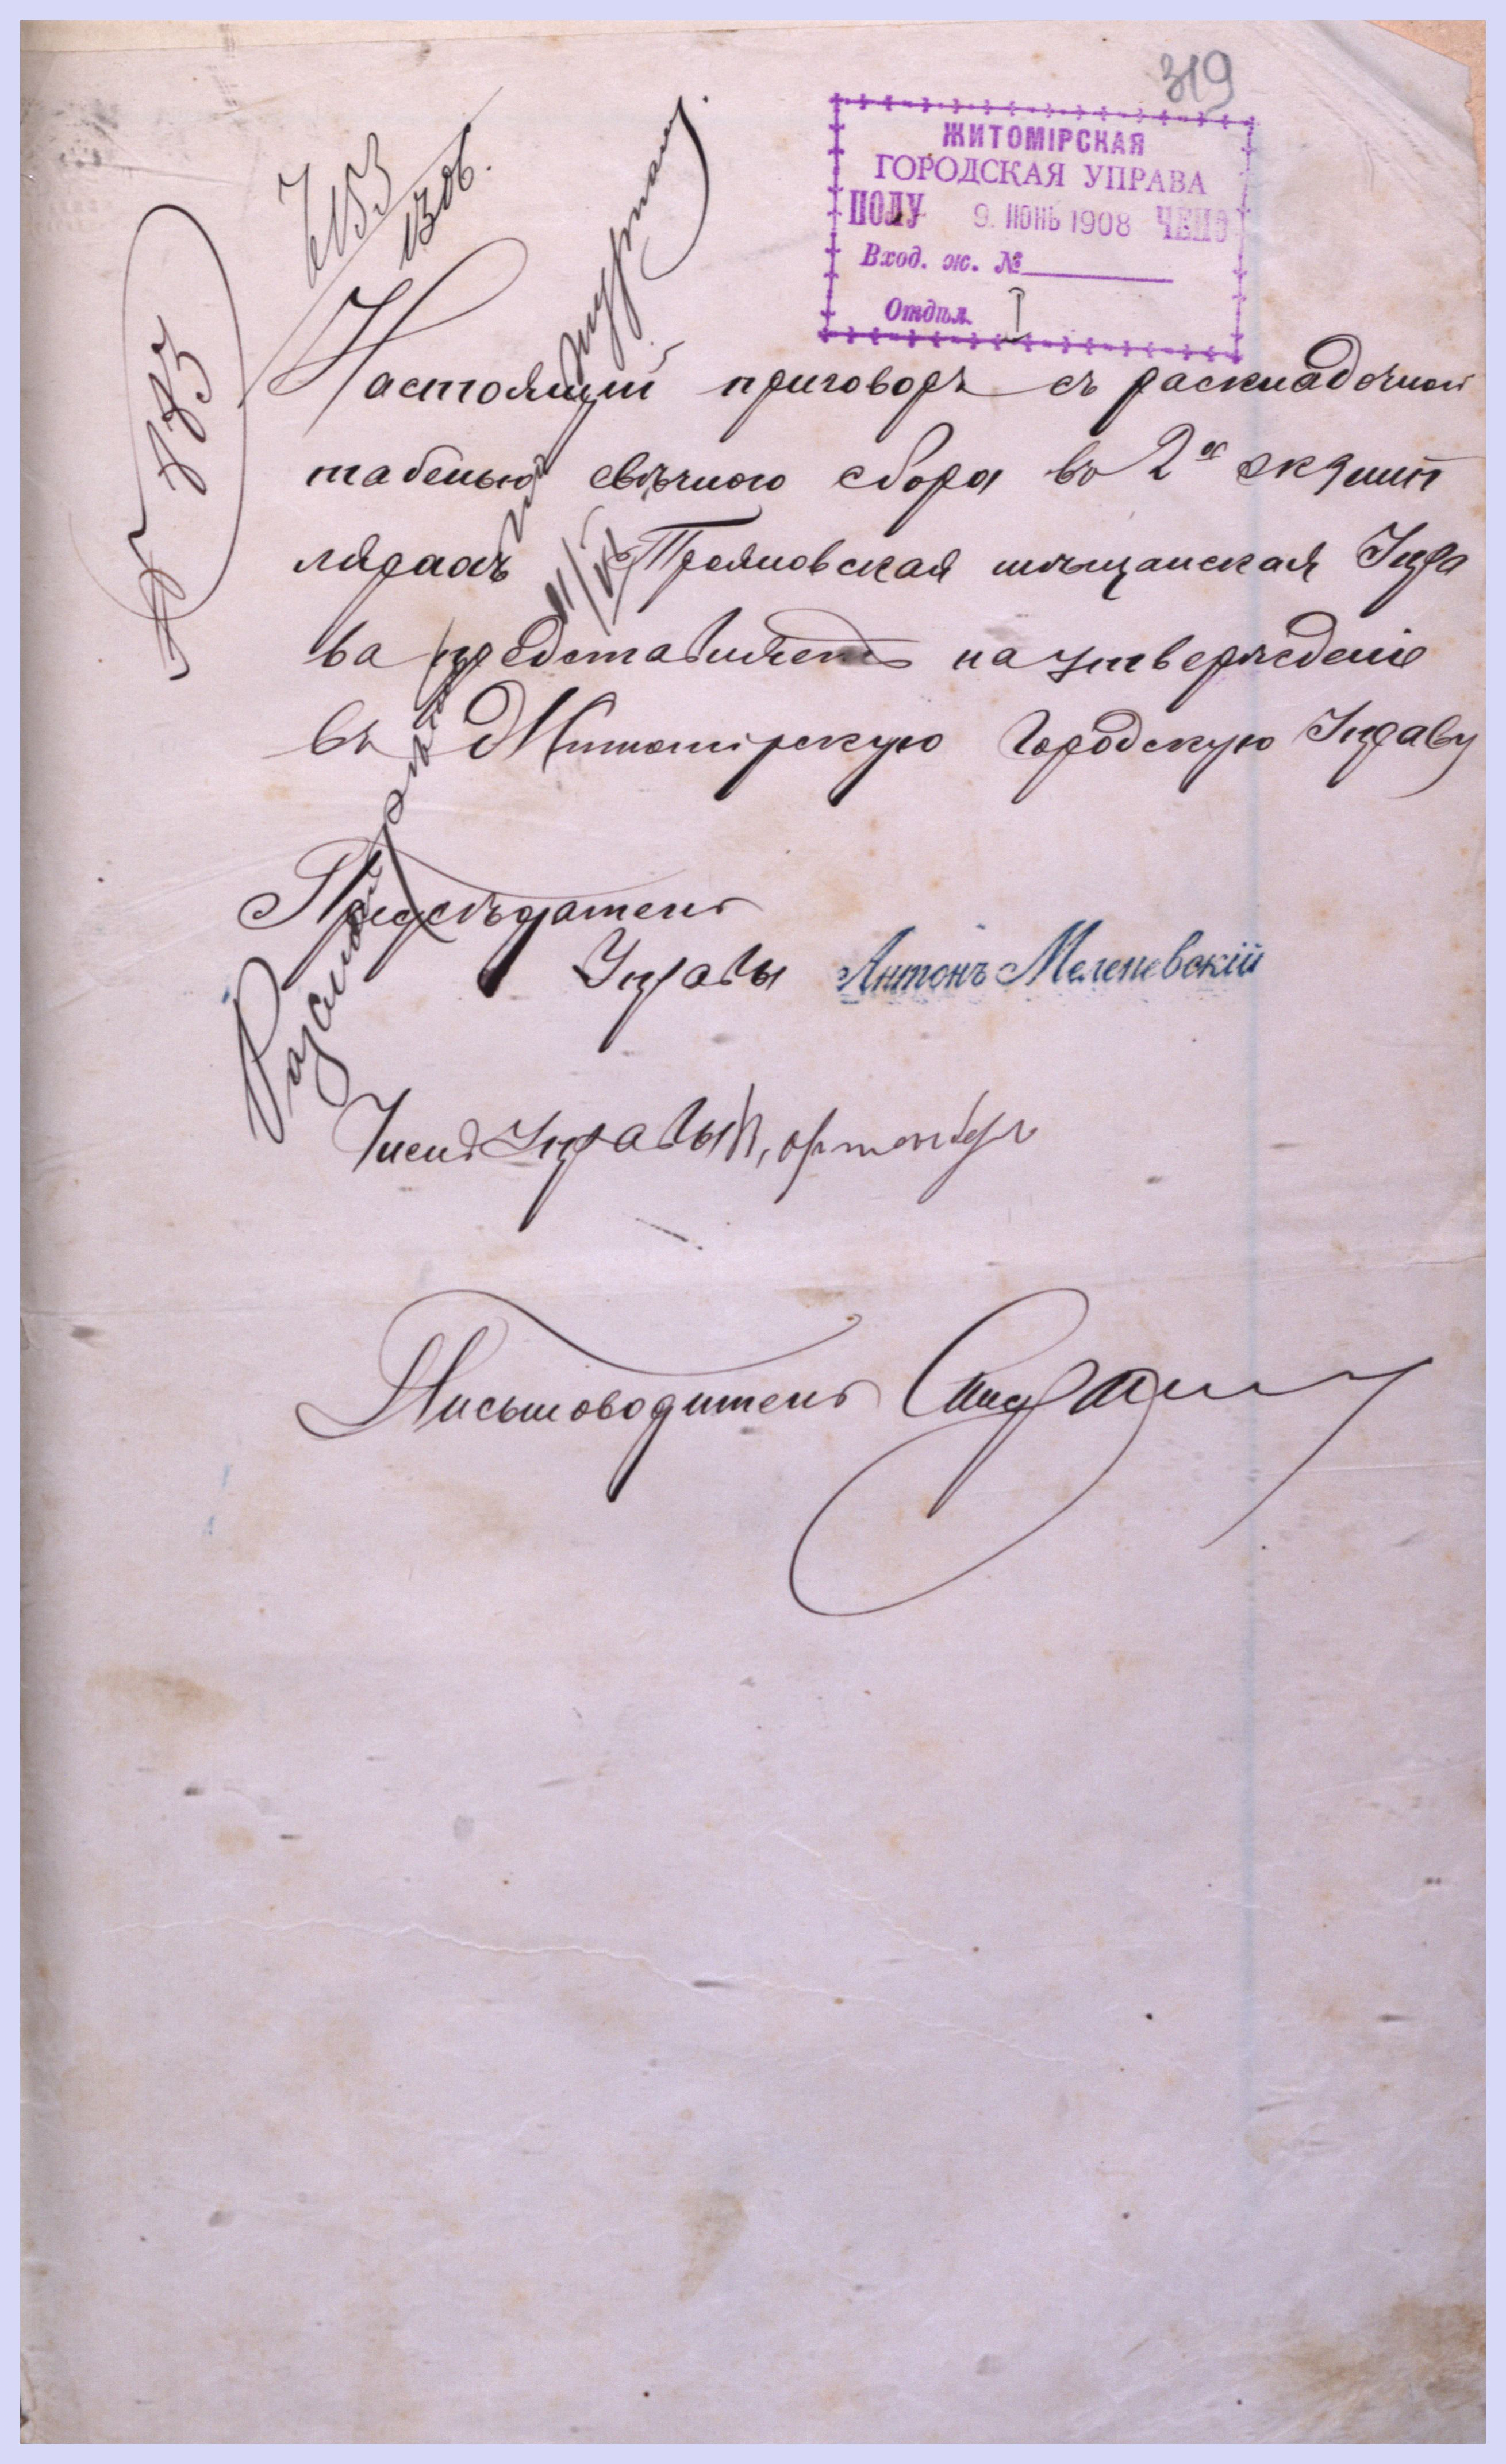 319
ЖИТОМІРСКАЯ
ГОРОДСКАЯ УПРАВА
ПОЛУ 9. ИЮНЬ 1908 ЧЕНО
Вход. ж. №
Отдѣл. I
Настоящій приговоръ съ раскладочной
табелью свѣчного сбора во 2х экземп
лярахъ Трояновская мѣщанская Упра
ва представляетъ на утвержденіе
въ Житомірскую Городскую Управу
Предсѣдатель
Управы Антонъ Меленевскій
Членъ Управы
Письмоводитель